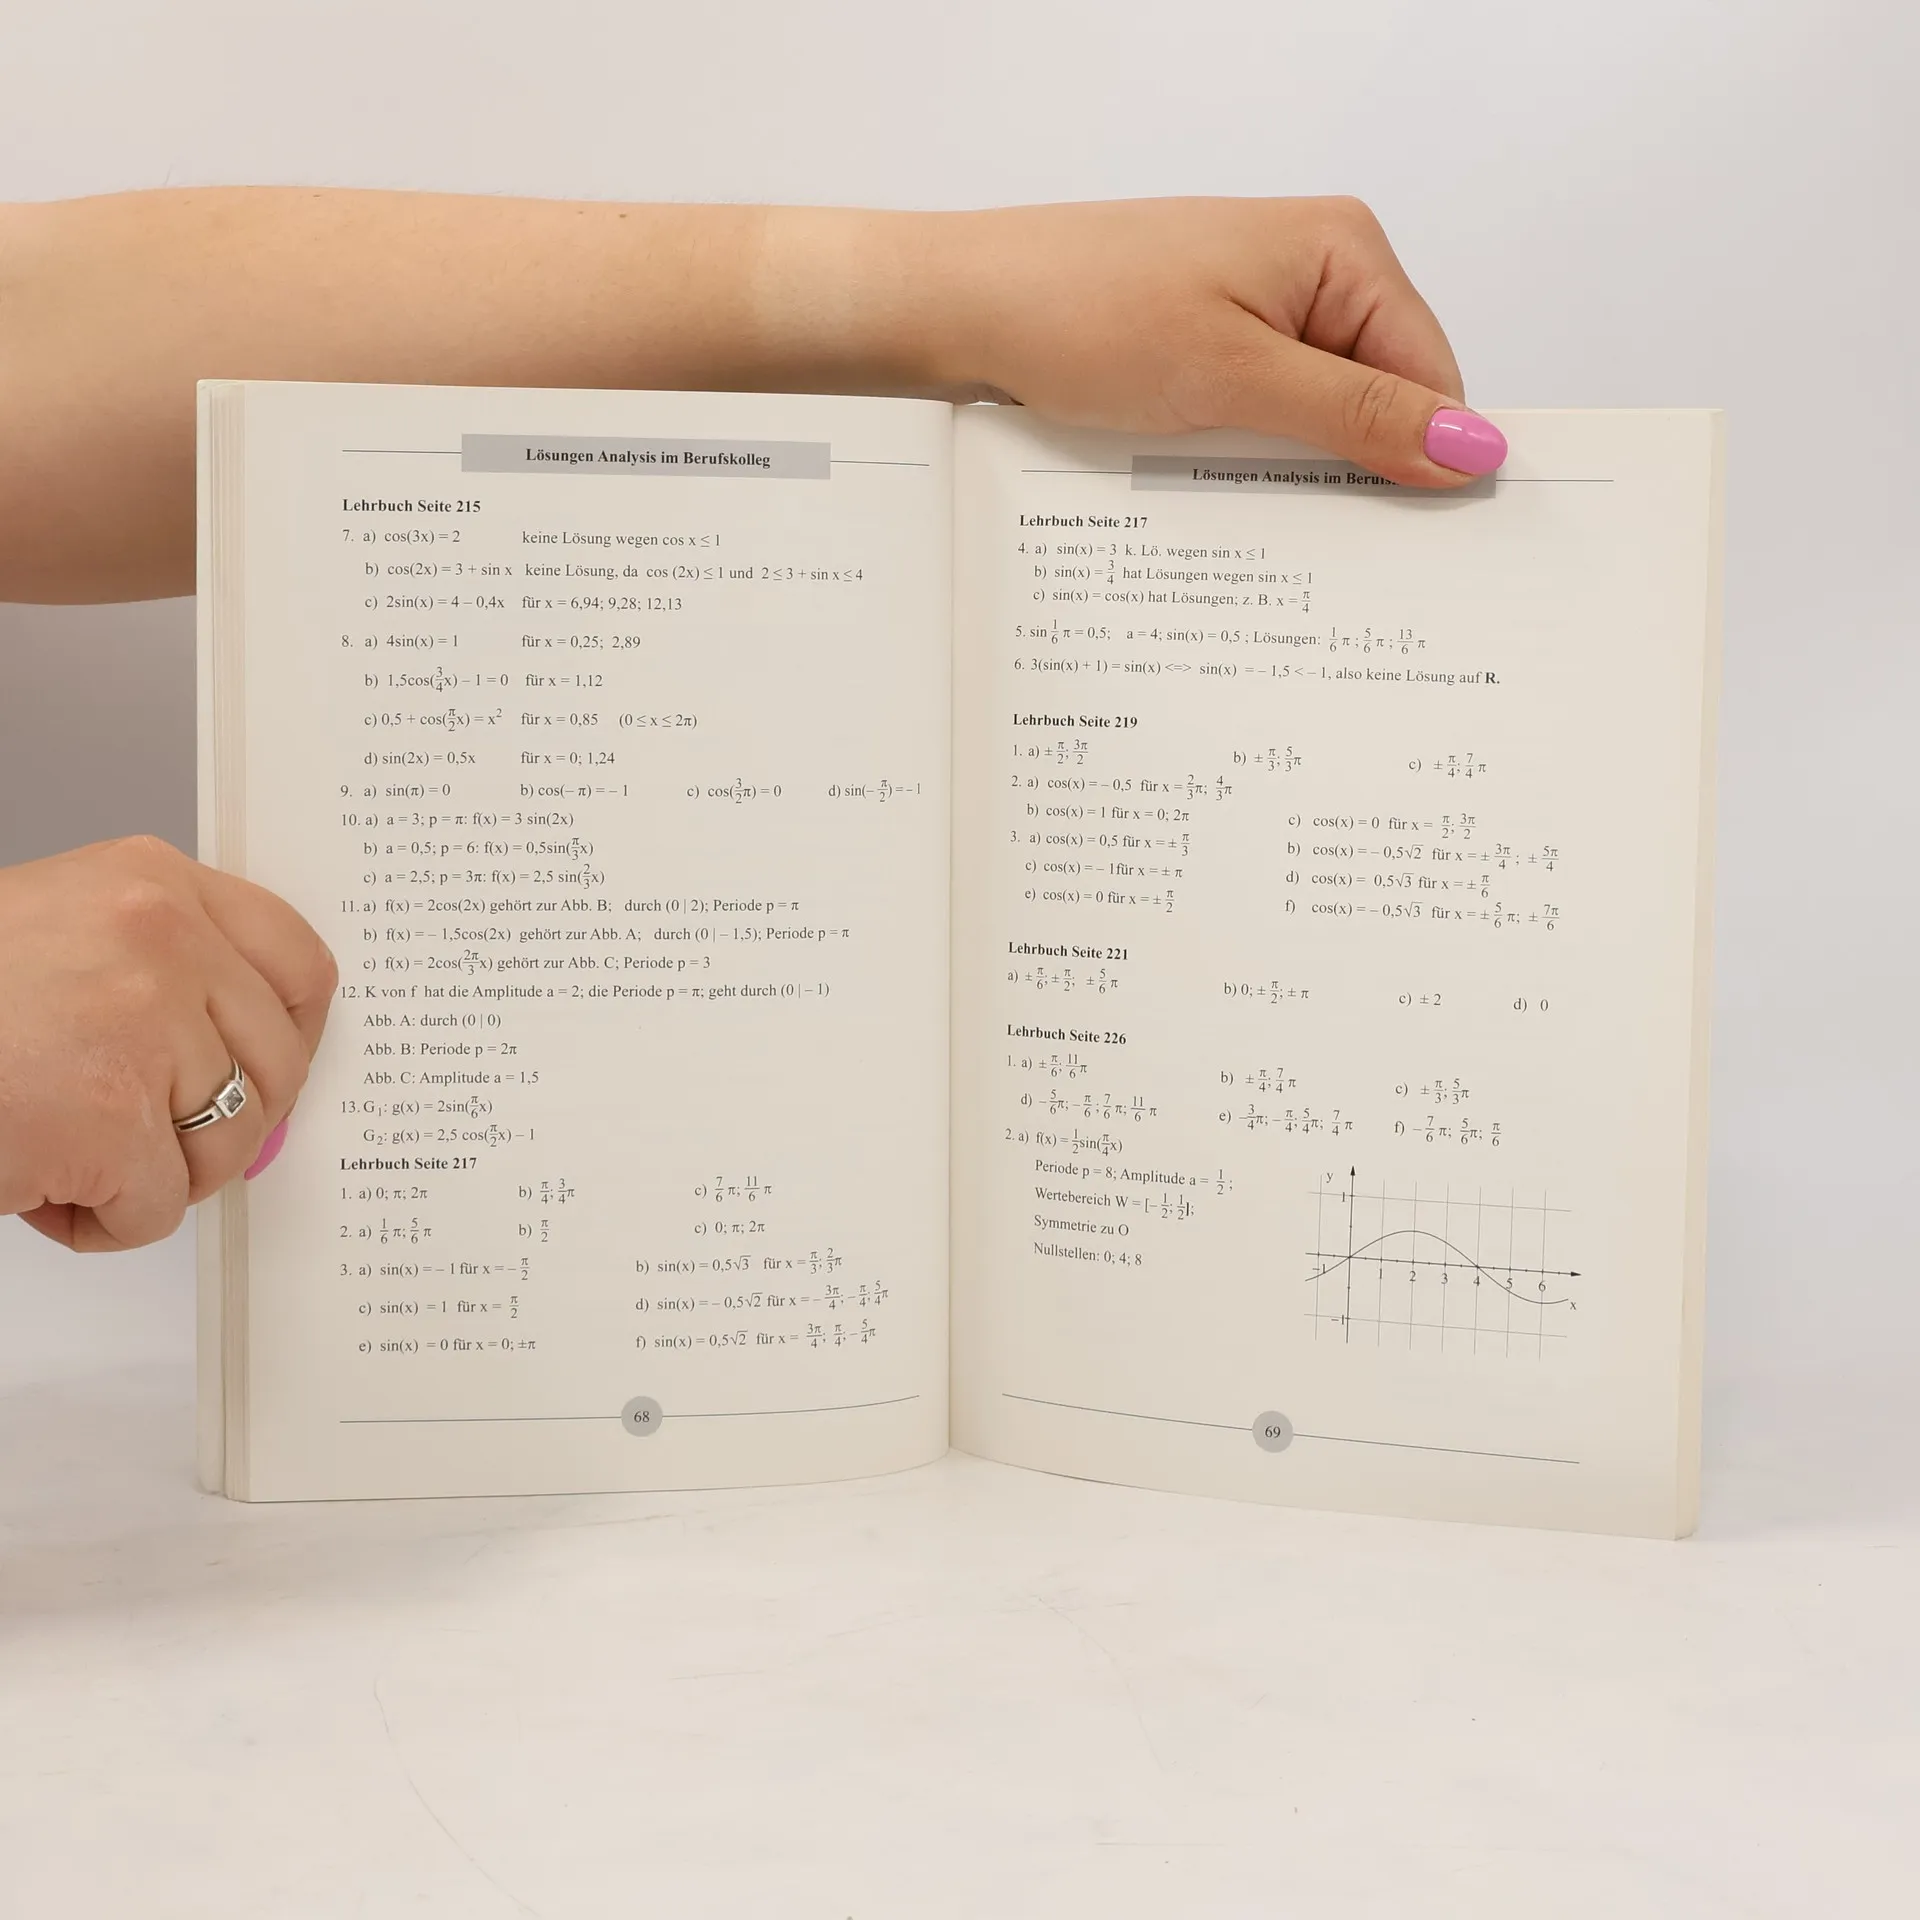 Lösungen Analysis im Berufskolleg
Lehrbuch Seite 215
7. a) cos(3x) = 2 keine Lösung wegen cos x ≤ 1
b) cos(2x) = 3 + sin x keine Lösung, da cos (2x) ≤ 1 und 2 ≤ 3 + sin x ≤ 4
c) 2sin(x) = 4 – 0,4x für x = 6,94; 9,28; 12,13
8. a) 4sin(x) = 1 für x = 0,25; 2,89
b) 1,5cos(3/4x) – 1 = 0 für x = 1,12
c) 0,5 + cos(π/2x) = x² für x = 0,85 (0 ≤ x ≤ 2π)
d) sin(2x) = 0,5x für x = 0; 1,24
9. a) sin(π) = 0 b) cos(– π) = – 1 c) cos(3/2π) = 0 d) sin(– π/2) = – 1
10. a) a = 3; p = π: f(x) = 3 sin(2x)
b) a = 0,5; p = 6: f(x) = 0,5sin(π/3x)
c) a = 2,5; p = 3π: f(x) = 2,5 sin(2/3x)
11. a) f(x) = 2cos(2x) gehört zur Abb. B; durch (0 | 2); Periode p = π
b) f(x) = – 1,5cos(2x) gehört zur Abb. A; durch (0 | – 1,5); Periode p = π
c) f(x) = 2cos(2π/3x) gehört zur Abb. C; Periode p = 3
12. K von f hat die Amplitude a = 2; die Periode p = π; geht durch (0 | – 1)
Abb. A: durch (0 | 0)
Abb. B: Periode p = 2π
Abb. C: Amplitude a = 1,5
13. G₁: g(x) = 2sin(π/6x)
G₂: g(x) = 2,5 cos(π/2x) – 1
Lehrbuch Seite 217
1. a) 0; π; 2π b) π/4; 3/4π c) 7/6 π; 11/6 π
2. a) 1/6 π; 5/6 π b) π/2 c) 0; π; 2π
3. a) sin(x) = – 1 für x = – π/2 b) sin(x) = 0,5√3 für x = π/3; 2/3π
c) sin(x) = 1 für x = π/2 d) sin(x) = – 0,5√2 für x = – 3π/4; – π/4; 5/4π
e) sin(x) = 0 für x = 0; ±π f) sin(x) = 0,5√2 für x = 3π/4; π/4; – 5/4π
68
Lösungen Analysis im
Lehrbuch Seite 217
4. a) sin(x) = 3 k. Lö. wegen sin x ≤ 1
b) sin(x) = 3/4 hat Lösungen wegen sin x ≤ 1
c) sin(x) = cos(x) hat Lösungen; z. B. x = π/4
5. sin 1/6 π = 0,5; a = 4; sin(x) = 0,5 ; Lösungen: 1/6 π ; 5/6 π ; 13/6 π
6. 3(sin(x) + 1) = sin(x) <=> sin(x) = – 1,5 < – 1, also keine Lösung auf R.
Lehrbuch Seite 219
1. a) ± π/2; 3π/2 b) ± π/3; 5/3π c) ± π/4; 7/4 π
2. a) cos(x) = – 0,5 für x = 2/3π; 4/3π
b) cos(x) = 1 für x = 0; 2π c) cos(x) = 0 für x = π/2; 3π/2
3. a) cos(x) = 0,5 für x = ± π/3 b) cos(x) = – 0,5√2 für x = ± 3π/4 ; ± 5π/4
c) cos(x) = – 1für x = ± π d) cos(x) = 0,5√3 für x = ± π/6
e) cos(x) = 0 für x = ± π/2 f) cos(x) = – 0,5√3 für x = ± 5/6 π; ± 7π/6
Lehrbuch Seite 221
a) ± π/6; ± π/2; ± 5/6 π b) 0; ± π/2; ± π c) ± 2 d) 0
Lehrbuch Seite 226
1. a) ± π/6; 11/6 π b) ± π/4; 7/4 π c) ± π/3; 5/3π
d) – 5/6π; – π/6 ; 7/6 π; 11/6 π e) – 3/4π; – π/4; 5/4π; 7/4 π f) – 7/6 π; 5/6π; π/6
2. a) f(x) = 1/2sin(π/4x)
Periode p = 8; Amplitude a = 1/2 ;
Wertebereich W = [– 1/2; 1/2];
Symmetrie zu O
Nullstellen: 0; 4; 8
y
1
–1 1 2 3 4 5 6
x
–1
69